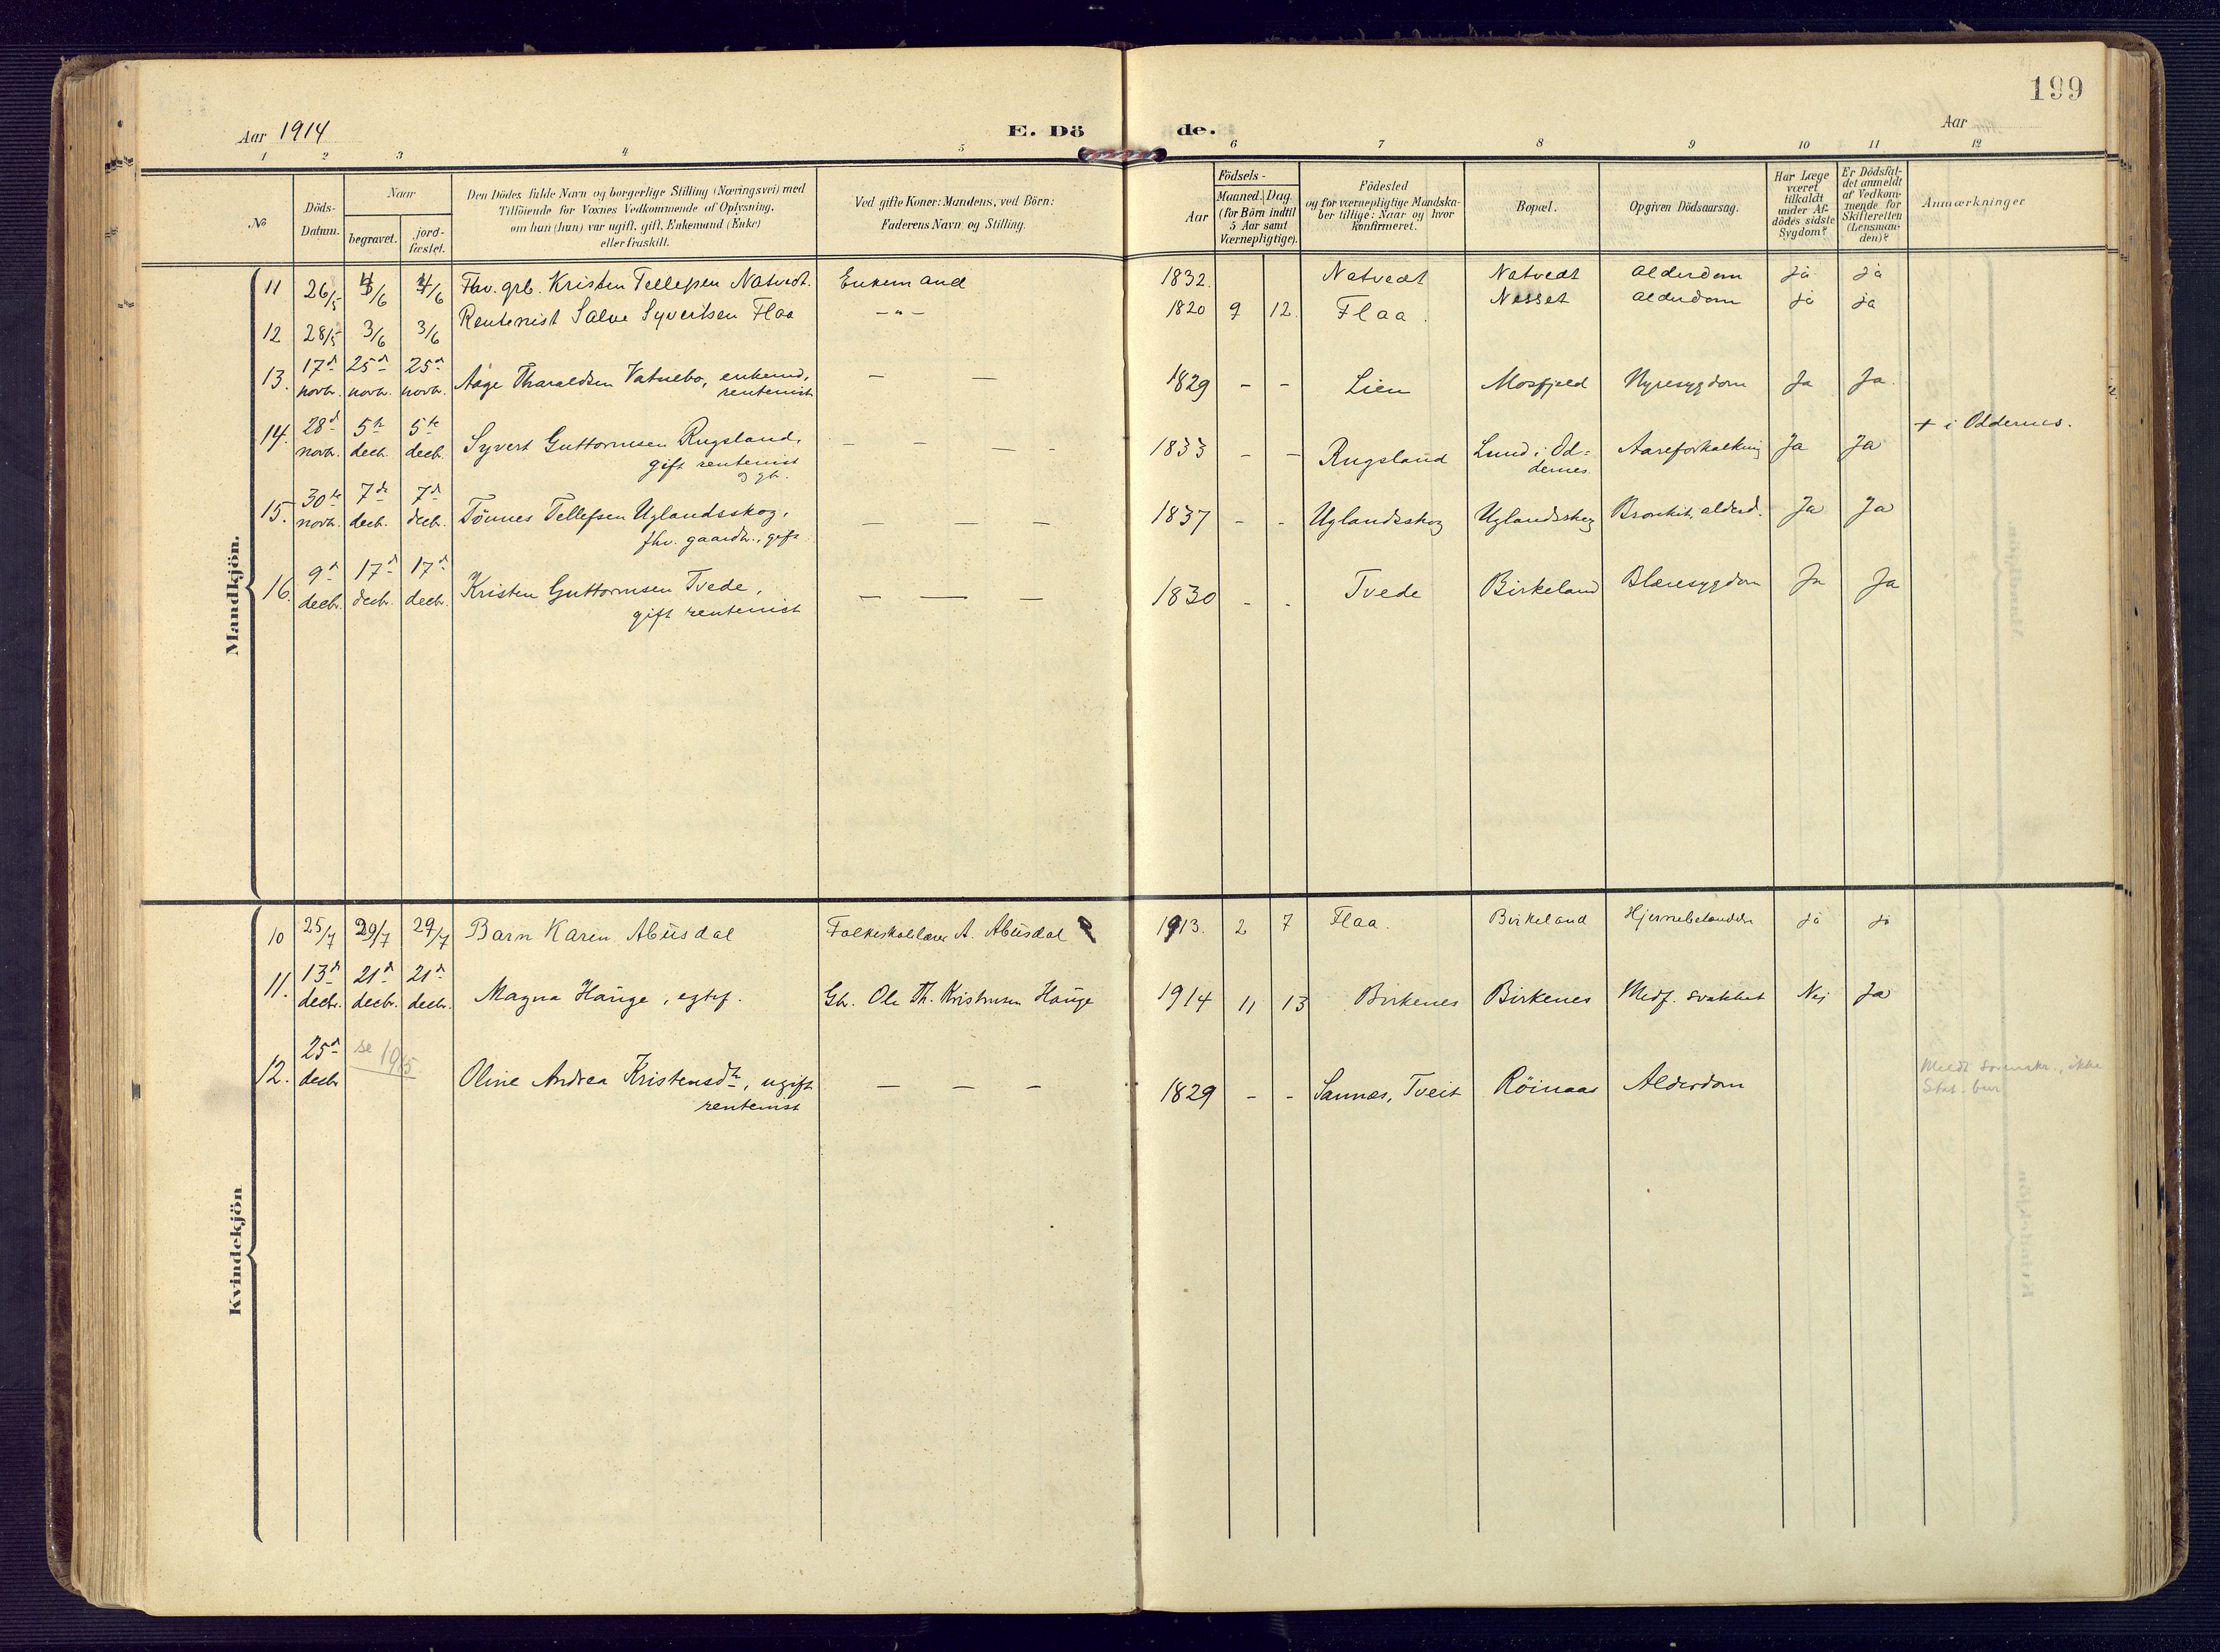 199
Aar 1914
E. Dö
de.
Aar
1 2 3 4 5 6 7 8 9 10 11 12
No
Döds-
Datum.
Naar
begravet.
jord-
fæstet.
Den Dödes fulde Navn og borgerlige Stilling (Næringsvei) med
Tilföiende for Voxnes Vedkommende af Oplysning,
om han (hun) var ugift, gift, Enkemand (Enke)
eller fraskilt.
Ved gifte Koner: Mandens, ved Börn:
Faderens Navn og Stilling.
Födsels-
Aar
Maaned. Dag.
(for Börn indtil
5 Aar samt
Værnepligtige).
Födested
og for værnepligtige Mandska-
ber tillige: Naar og hvor
konfirmeret.
Bopæl.
Opgiven Dödsaarsag.
Har Læge
været
tilkaldt
under Af-
dödes sidste
Sygdom?
Er Dödsfal-
det anmeldt
af Vedkom-
mende for
Skifteretten
(Lensman-
den)?
Anmærkninger
Mandkjön.
11 26/5 /6 /6 Fhv. grb. Kristen Tellefsen Natvedt. Enkemand 1832. Natvedt Natvedt Alderdom ja ja
12 28/5 3/6 3/6 Rentenist Salve Syvertsen Flaa —"— 1820 9 12. Flaa. Nesset Alderdom ja ja
13. 17d novbr. 25d novbr. 25d novbr. Aage Tharaldsen Vatnebo, enkemd, — — 1829 - - Lien Mosfjeld Nyresygdom Ja Ja.
rentenist
14. 28d novbr. 5te decbr. 5te decbr. Syvert Guttormsen Rugsland, — — — - 1833 - - Rugsland Lund i Od=
dernes. Aareforkalkning Ja Ja + i Oddernes.
gift rentenist
15. 30te novbr. 7de decbr. 7de decbr. Tönnes Tellefsen Uglandsskog, — — — 1837 - - Uglandsskog Uglandsskog Bronkit, alderd. Ja Ja
fhv. gaardbr., gift
16. 9d decbr. 17d decbr. 17d decbr. Kristen Guttormsen Tvede, — — — 1830 - - Tvede Birkeland Blæresygdom Ja Ja
gift rentenist
Kvindekjön
10 25/7 29/7 29/7 Barn Karen Abusdal Folkeskolelærer A. Abusdal 1913. 2 7 Flaa. Birkeland Hjernebetændelse ja ja
11. 13d decbr. 21d decbr. 21d decbr. Magna Hauge, egtef. Gbr. Ole Th. Kristensen Hauge 1914 11 13 Birkenes Birkenes Medf. svakhet Nei Ja
12. 25d decbr se 1915 Oline Andrea Kristensdtr, ugift — — — 1829 - - Sannæs, Tveit Röinaas Alderdom
rentenist
Meldt , ikke
Stat. bur